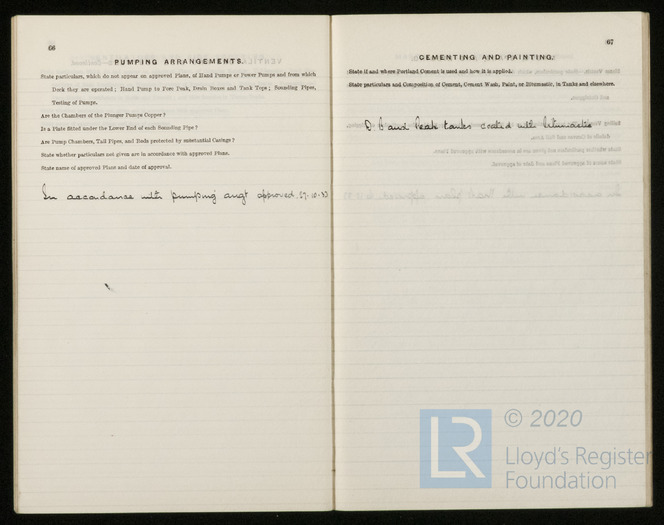 66
PUMPING ARRANGEMENTS.
State particulars, which do not appear on approved Plans, of Hand Pumps or Power Pumps and from which
Deck they are operated; Hand Pump in Fore Peak, Drain Boxes and Tank Tops; Sounding Pipes,
Testing of Pumps.
Are the Chambers of the Plunger Pumps Copper?
Is a Plate fitted under the Lower End of each Sounding Pipe?
Are Pump Chambers, Tail Pipes, and Rods protected by substantial Casings?
State whether particulars not given are in accordance with approved Plans.
State name of approved Plans and date of approval.
In accordance with pumping angt approved 27.10.33
67
CEMENTING AND PAINTING.
State if and where Portland Cement is used and how it is applied.
State particulars and Composition of Cement, Cement Wash, Paint, or Bitumastic, in Tanks and elsewhere.
and Peak tanks coated with bitumastic
© 2020
LR
Lloyd's Register
Foundation